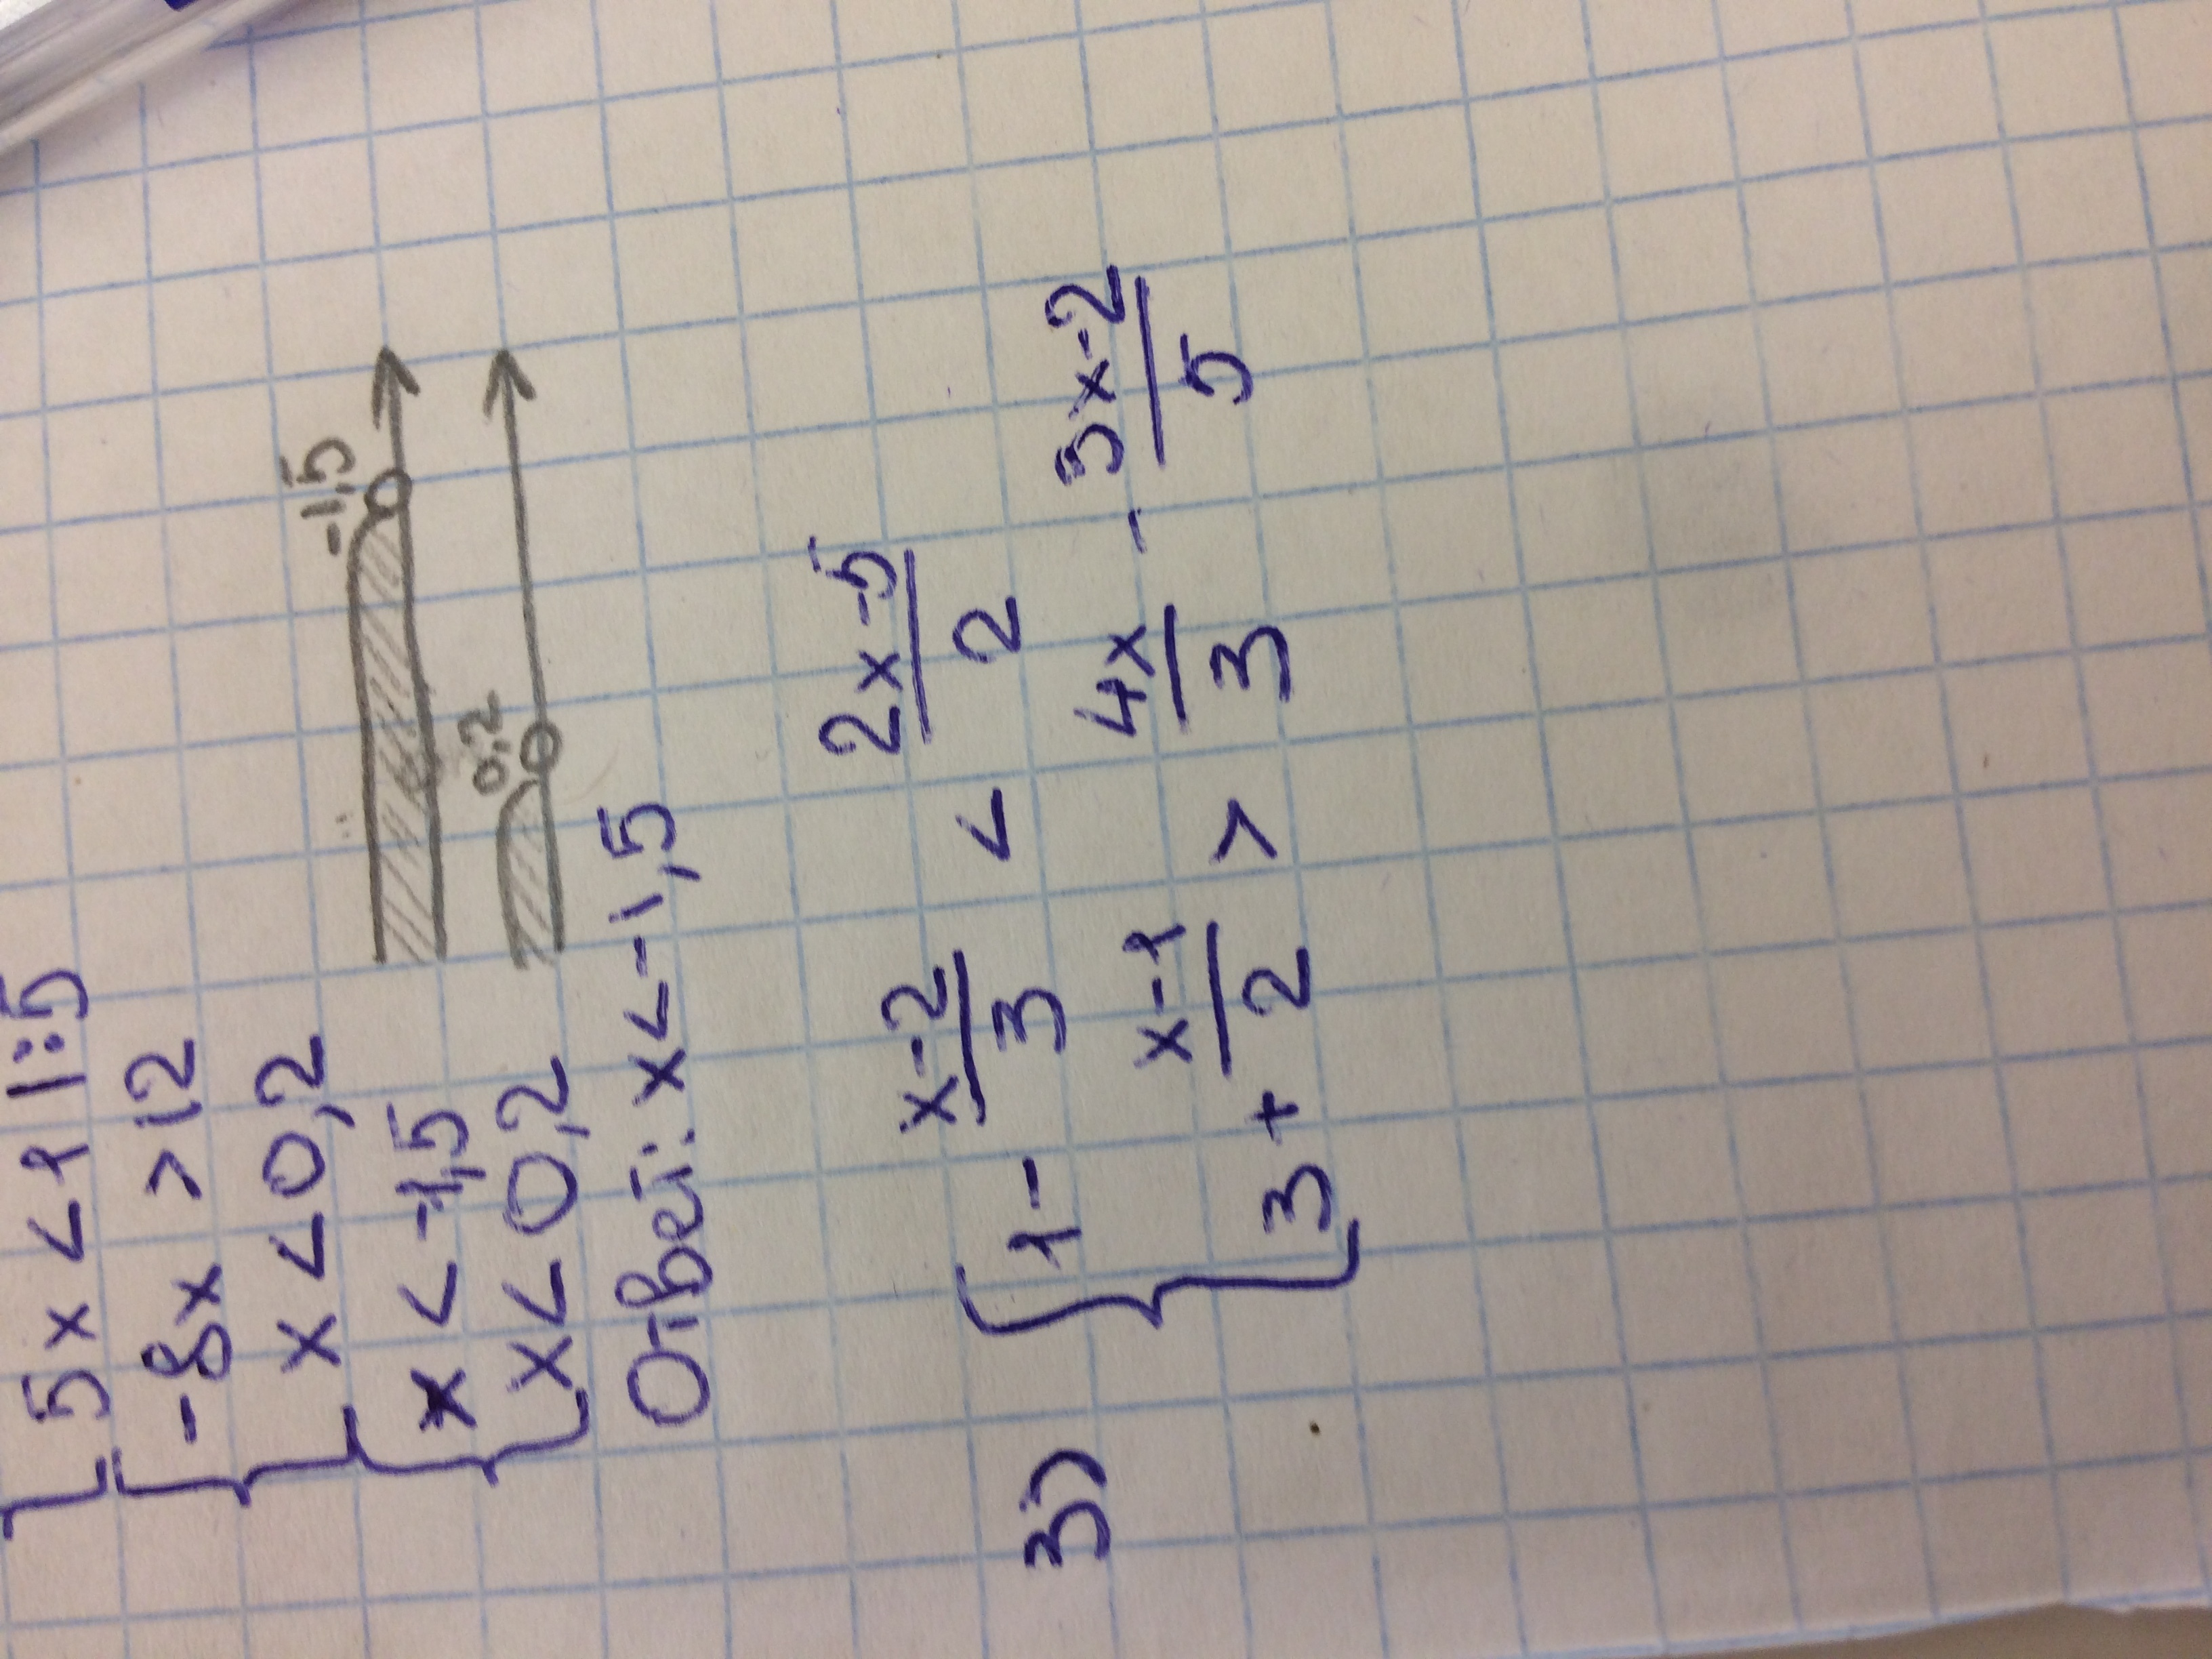 5x < 1 |:5
-8x > 12
x < 0,2
-1,5
x < -1,5
0,2
x < 0,2
Ответ: x < -1,5
3) 1 - \frac{x-2}{3} < \frac{2x-5}{2}
3 + \frac{x-1}{2} > \frac{4x}{3} - \frac{3x-2}{5}